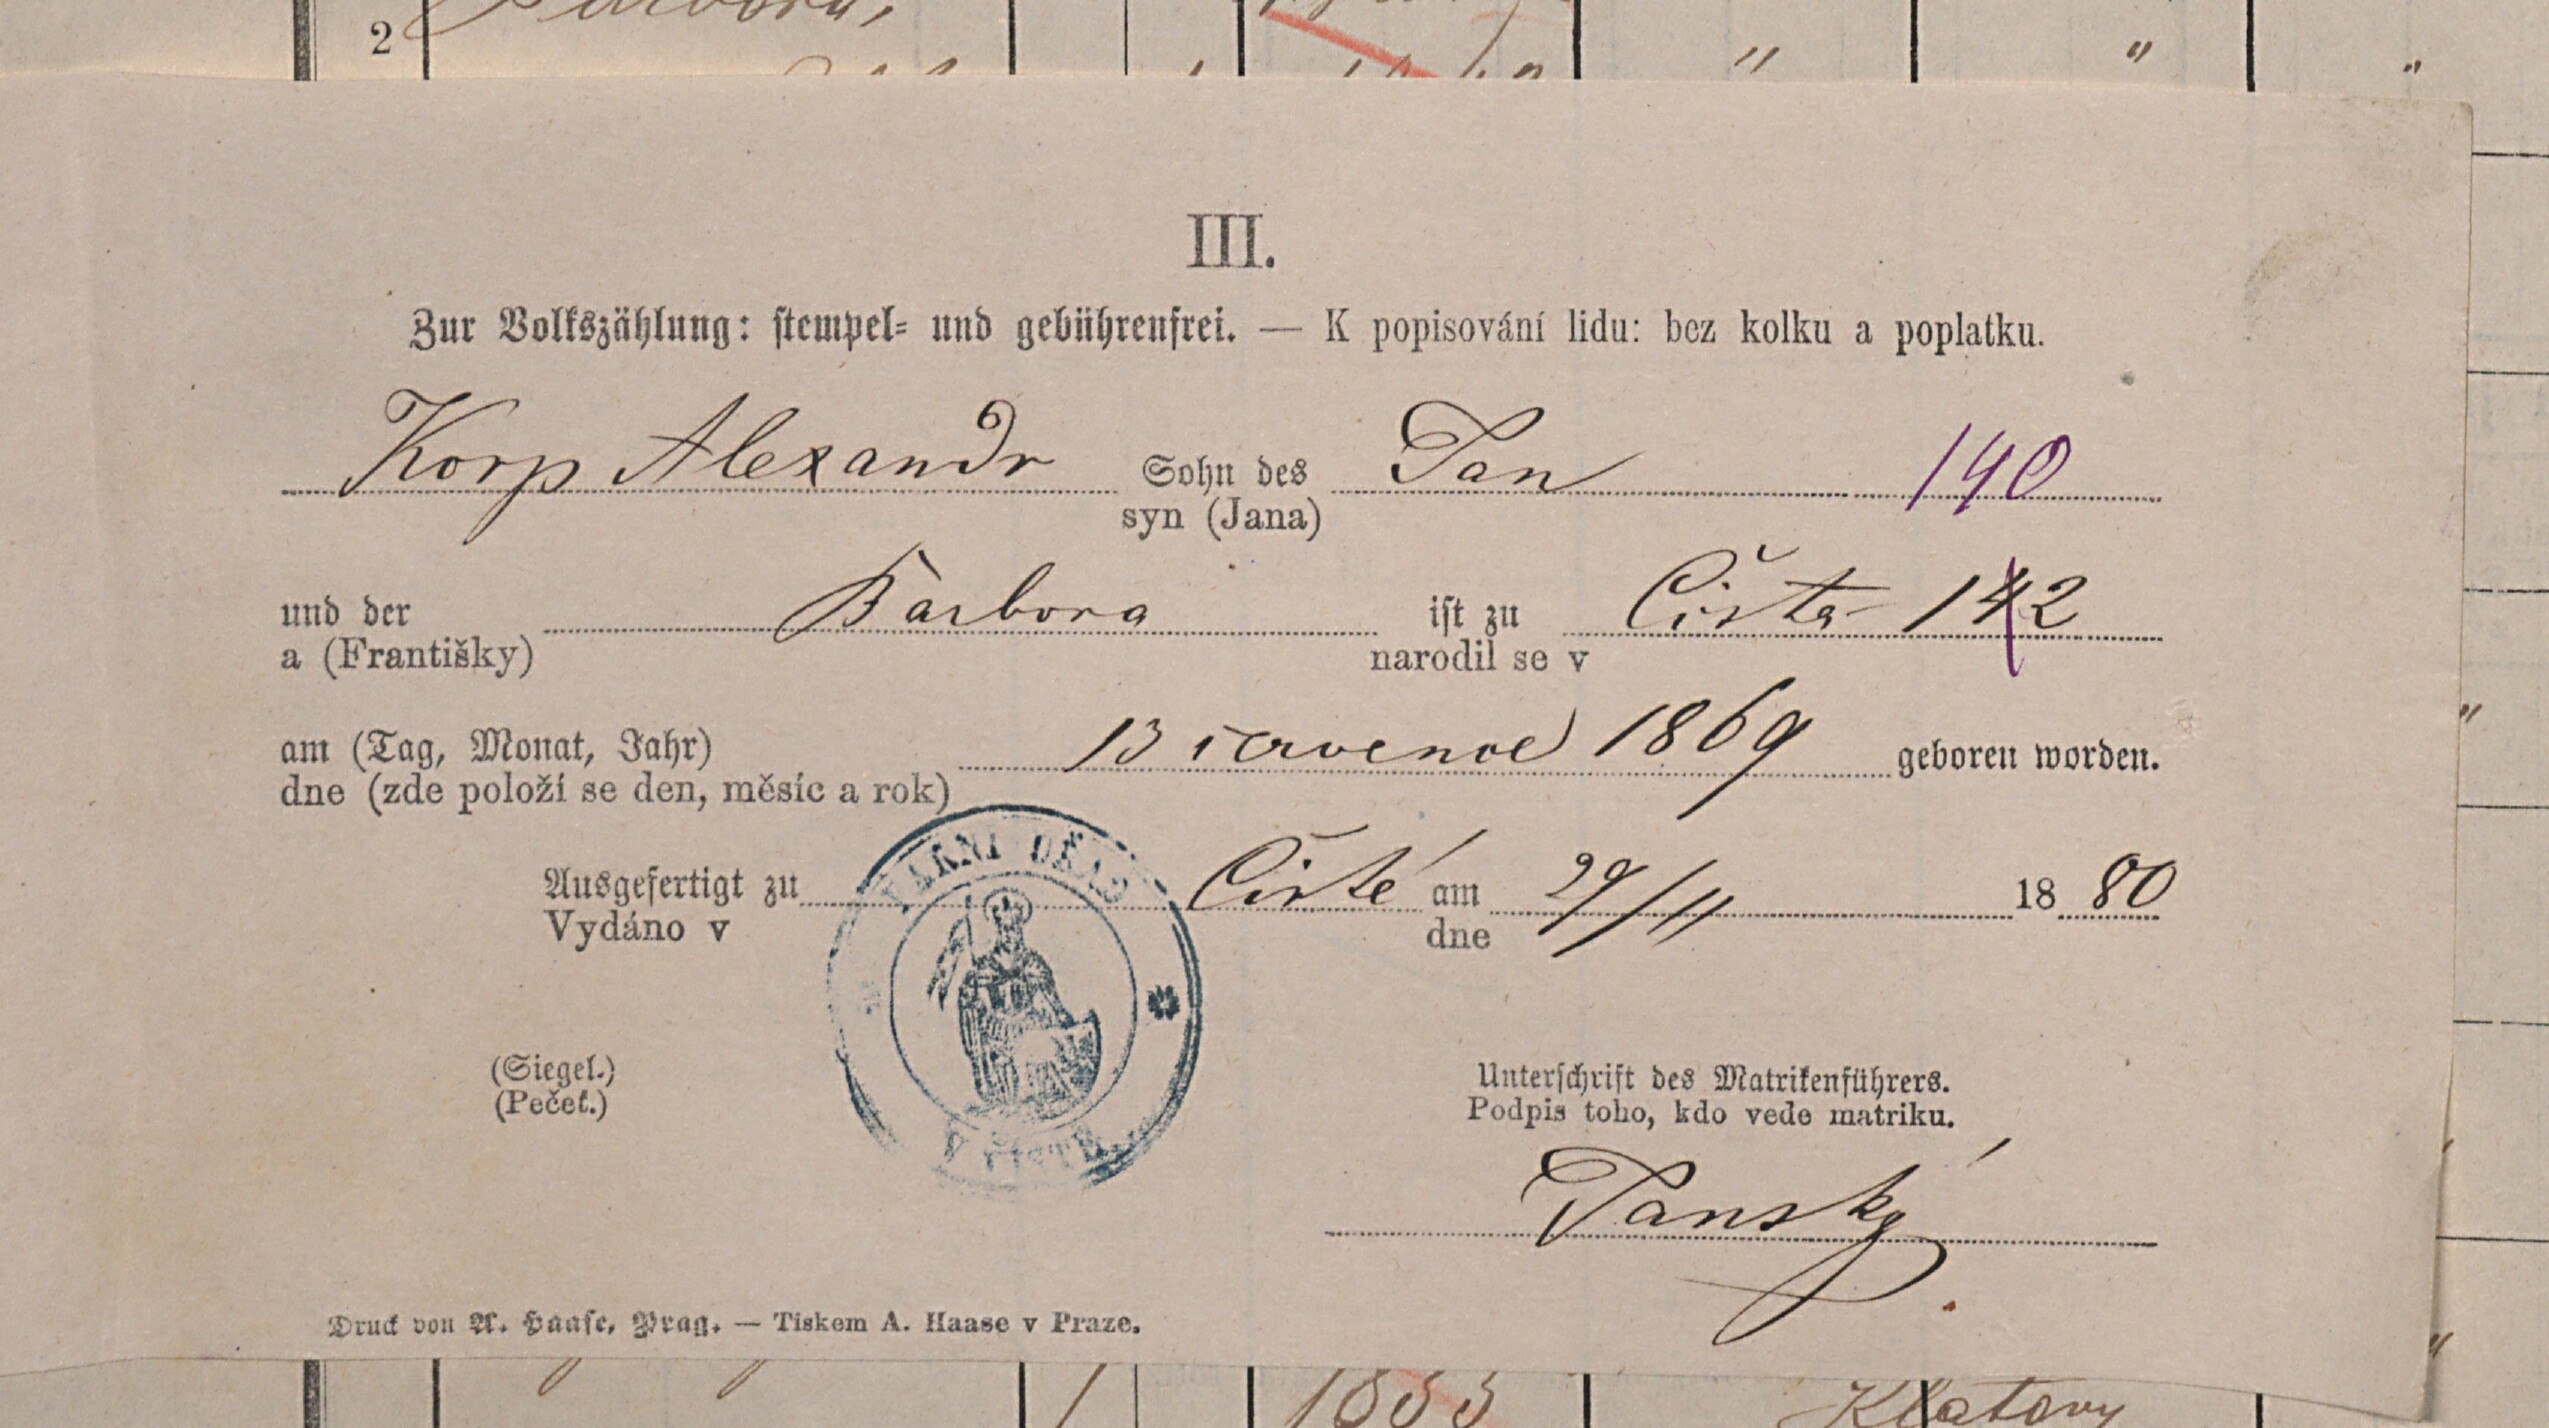 2
III.
Zur Volkszählung: stempel- und gebührenfrei. — K popisování lidu: bez kolku a poplatku.
Korp Alexandr Sohn des Jan 140
syn (Jana)
und der Barbora ist zu Čista 142
a (Františky) narodil se v
am (Tag, Monat, Jahr) 13 července 1869 geboren worden.
dne (zde položí se den, měsíc a rok)
FARNÍ ÚŘAD
Ausgefertigt zu Čisté am 29/11 1880
Vydáno v dne
(Siegel.)
(Pečeť.)
V ČISTÉ
Unterschrift des Matrikenführers.
Podpis toho, kdo vede matriku.
Janský
Druck von A. Haase, Prag. — Tiskem A. Haase v Praze.
1833 Klatovy